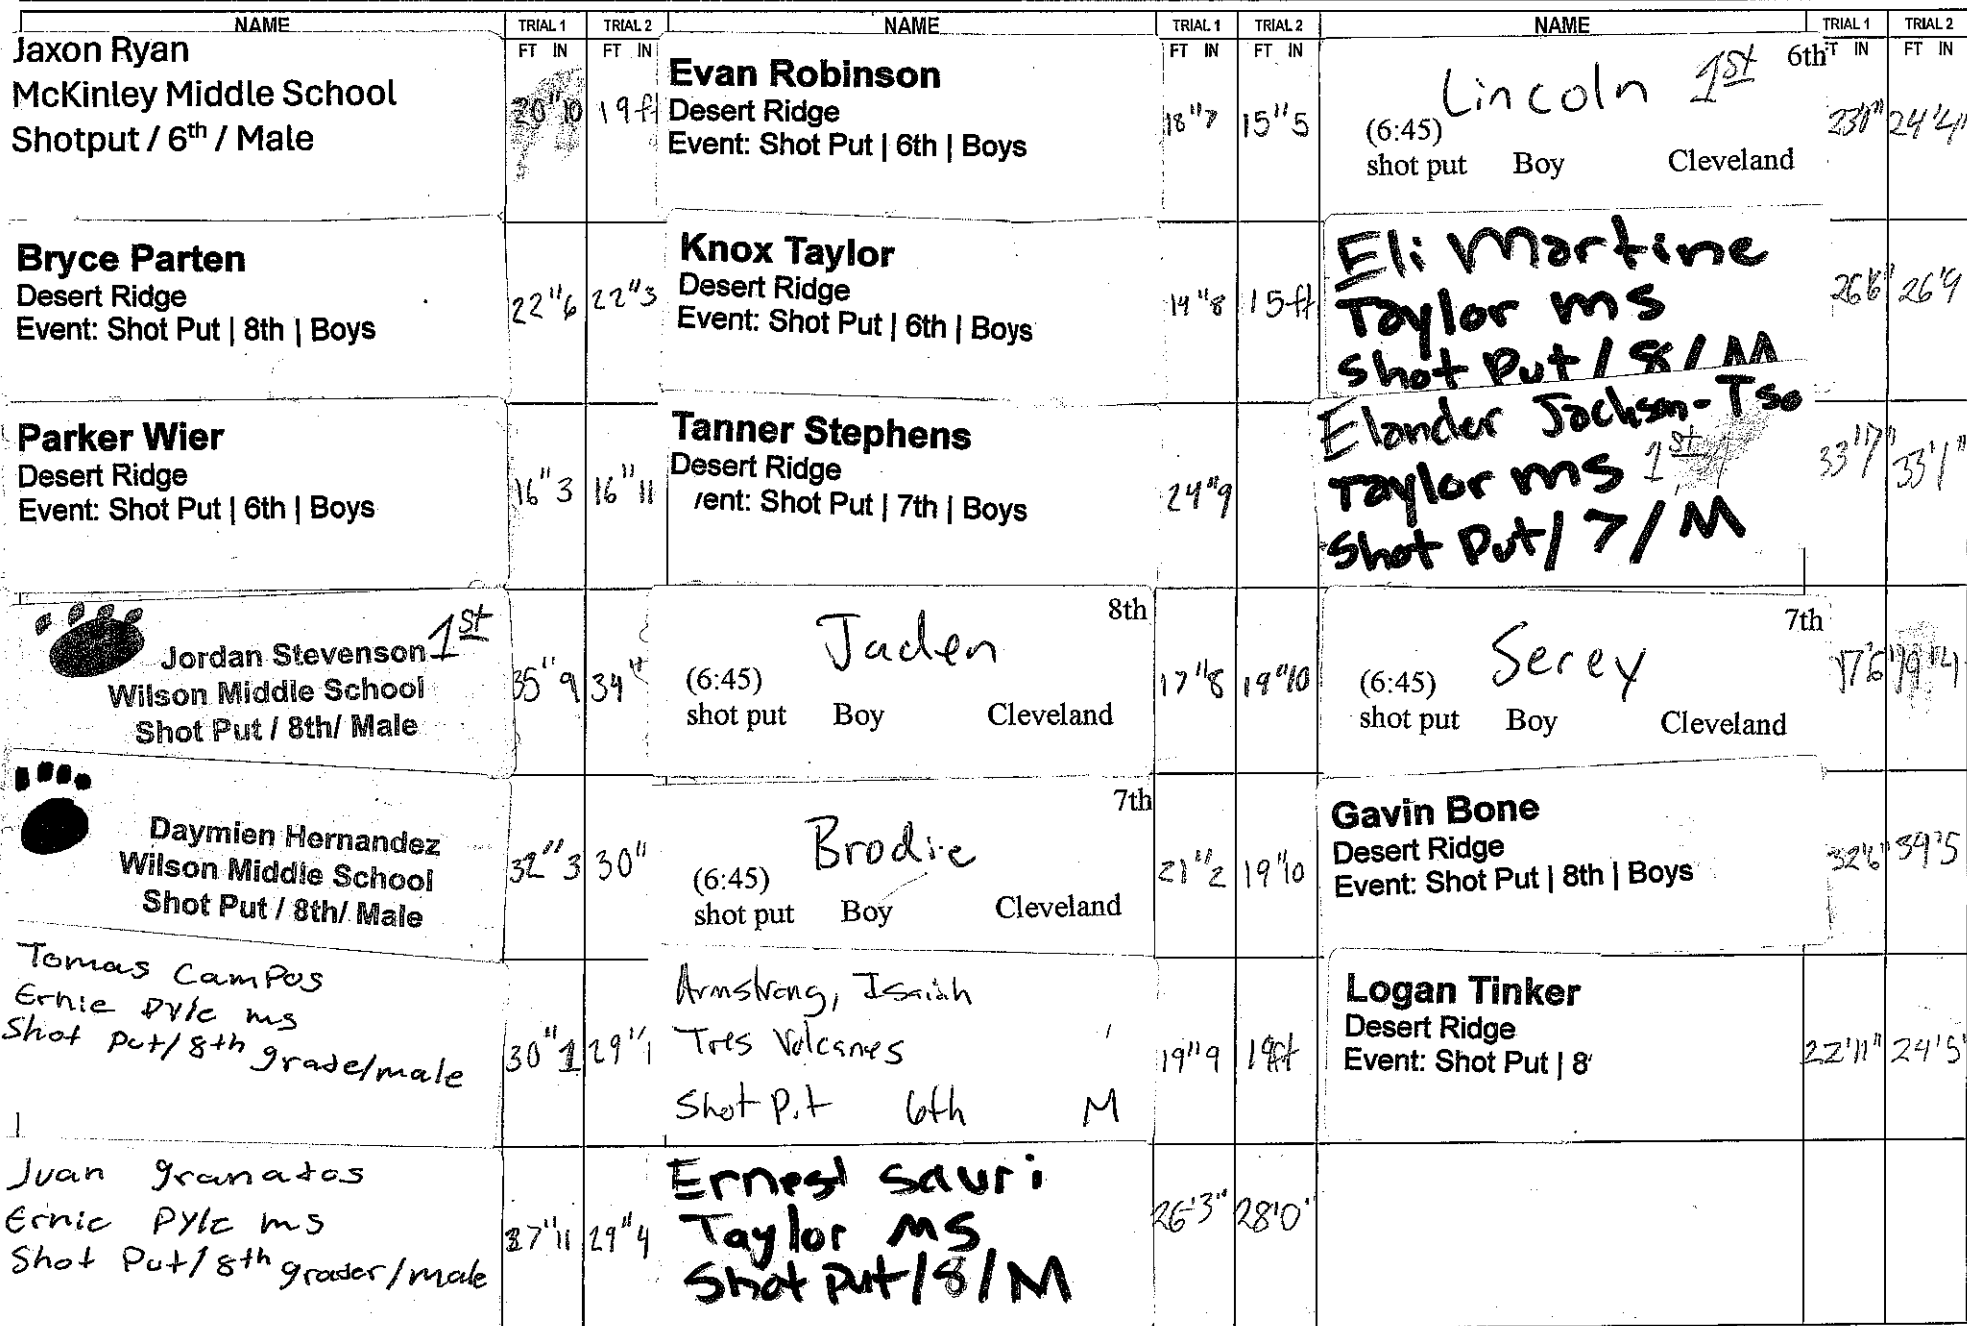 NAME TRIAL 1 TRIAL 2 NAME TRIAL 1 TRIAL 2 NAME TRIAL 1 TRIAL 2
FT IN FT IN FT IN FT IN FT IN FT IN
Jaxon Ryan
McKinley Middle School
Shotput / 6th / Male
20"10 19ft
Evan Robinson
Desert Ridge
Event: Shot Put | 6th | Boys
18"7 15"5
Lincoln 1st 6th
(6:45)
shot put Boy Cleveland
24'4"
Bryce Parten
Desert Ridge
Event: Shot Put | 8th | Boys
22"6 22"3
Knox Taylor
Desert Ridge
Event: Shot Put | 6th | Boys
14"8 15ft
Eli Martine
Taylor ms
Shot Put / 8 / M
26'6" 26'9
Parker Wier
Desert Ridge
Event: Shot Put | 6th | Boys
16"3 16"11
Tanner Stephens
Desert Ridge
ent: Shot Put | 7th | Boys
24"9
Elander Jackson-Tso
Taylor ms 1st
Shot Put/ 7/ M
33'7" 33'1"
Jordan Stevenson 1st
Wilson Middle School
Shot Put / 8th/ Male
35"9 34"
8th
Jaden
(6:45)
shot put Boy Cleveland
17"8 19"10
7th
Serey
(6:45)
shot put Boy Cleveland
17'6"
Daymien Hernandez
Wilson Middle School
Shot Put / 8th/ Male
32"3 30"
7th
Brodie
(6:45)
shot put Boy Cleveland
21"2 19"10
Gavin Bone
Desert Ridge
Event: Shot Put | 8th | Boys
32'6"
Tomas Campos
Ernie Pyle ms
Shot Put/ 8th grade/male
30"1 29"1
Armstrong, Isaiah
Tres Volcanes
Shot Put 6th M
19"9
Logan Tinker
Desert Ridge
Event: Shot Put | 8
22'11" 24'5"
Juan granatos
Ernie Pyle ms
Shot Put/ 8th grader/male
29"4
Ernest Sauri
Taylor MS
Shot Put/8/M
26'3" 28'0"